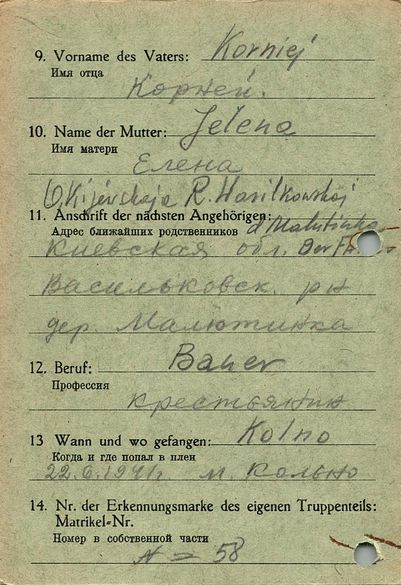 9. Vorname des Vaters: Korniej
Имя отца
Корней.
10. Name der Mutter: Jelena
Имя матери
Елена
O. Kijewskaja R. Wasilkowskoj
11. Anschrift der nächsten Angehörigen: d Malutinka
Адрес ближайших родственников
Киевская обл.
Васильковск. рн
дер. Малютинка
12. Beruf: Bauer
Профессия
крестьянин
13 Wann und wo gefangen: Kolno
Когда и где попал в плен
22.6.1941г. м Кольно
14. Nr. der Erkennungsmarke des eigenen Truppenteils:
Matrikel-Nr.
Номер в собственной части
58